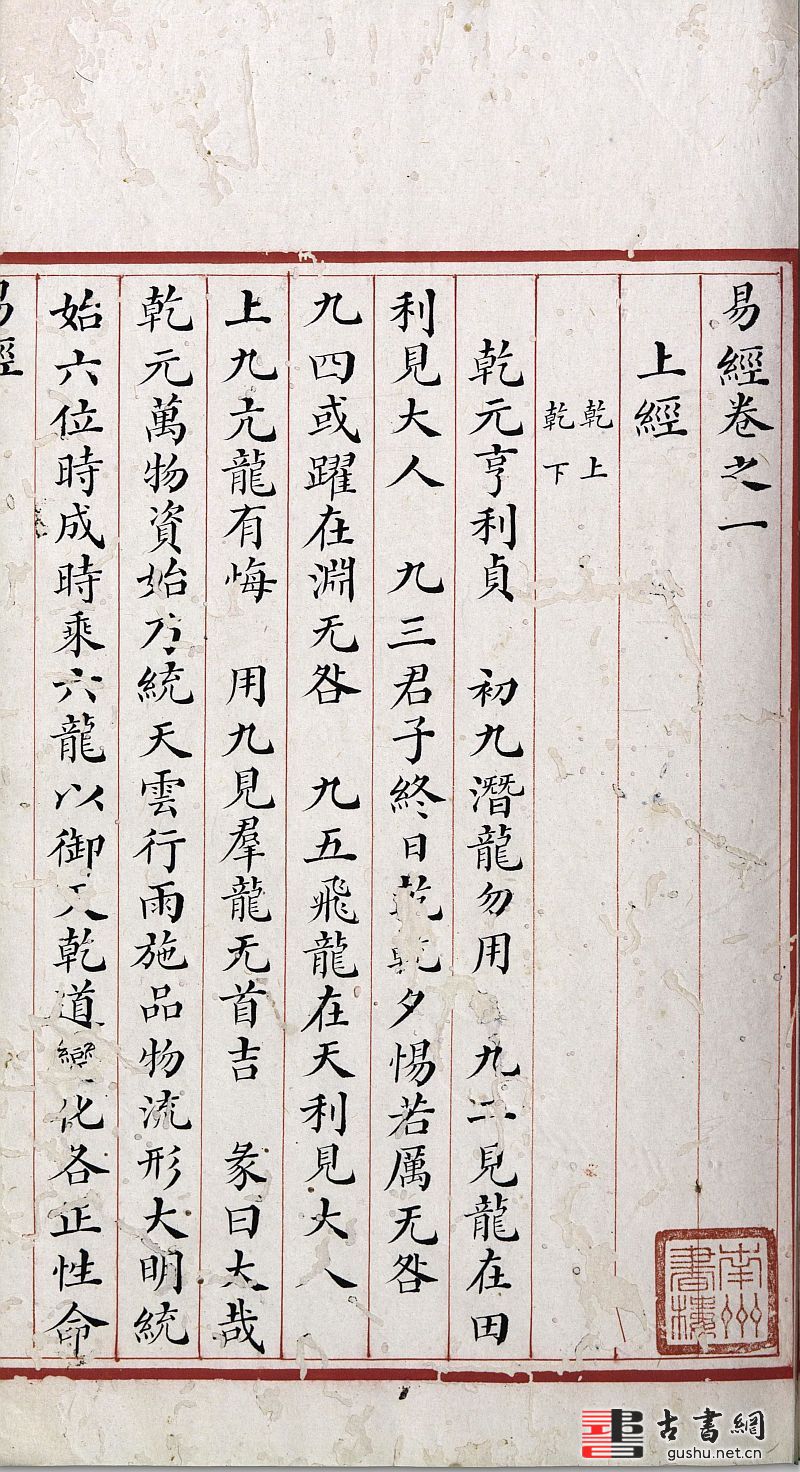 易經卷之一
上經
乾上
乾下
乾元亨利貞　初九潛龍勿用　九二見龍在田
利見大人　九三君子終日乾乾夕惕若厲无咎
九四或躍在淵无咎　九五飛龍在天利見大人
上九亢龍有悔　用九見羣龍无首吉　彖曰大哉
乾元萬物資始乃統天雲行雨施品物流形大明統
始六位時成時乘六龍以御天乾道變化各正性命
易經
南州
書樓
古書網
gushu.net.cn